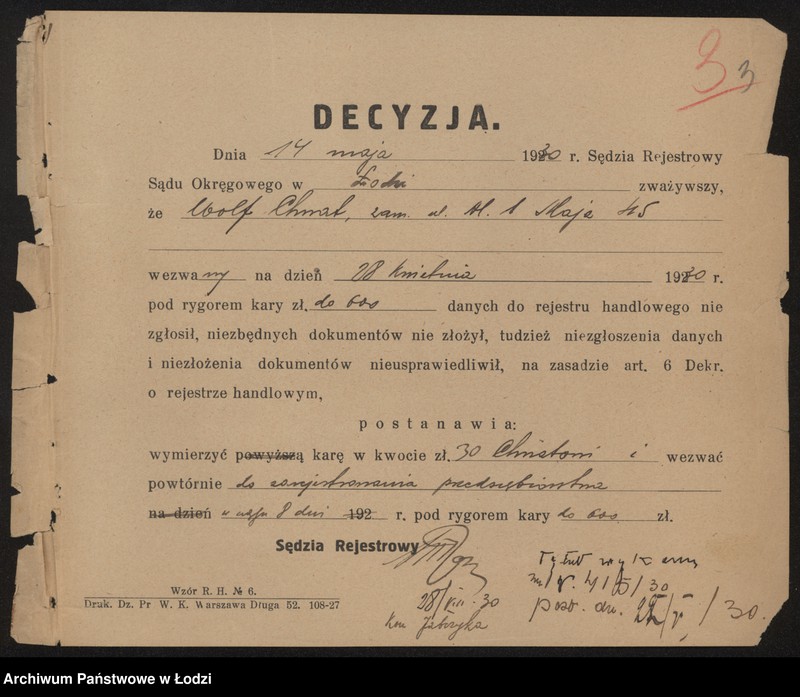 3 3
DECYZJA.
Dnia 14 maja 1930 r. Sędzia Rejestrowy
Sądu Okręgowego w Łodzi zważywszy,
że Wolf Chmat, zam. ul. 1 Maja 45
wezwany na dzień 28 kwietnia 1930 r.
pod rygorem kary zł. do 600 danych do rejestru handlowego nie
zgłosił, niezbędnych dokumentów nie złożył, tudzież niezgłoszenia danych
i niezłożenia dokumentów nieusprawiedliwił, na zasadzie art. 6 Dekr.
o rejestrze handlowym,
postanawia:
wymierzyć powyższą karę w kwocie zł. 30 i wezwać
powtórnie do zarejestrowania przedsiębiorstwa
na dzień w ciągu 8 dni 192 r. pod rygorem kary do 600 zł.
Sędzia Rejestrowy
Tytuł wyk
28/VIII 30
/30.
Wzór R. H. № 6.
Druk. Dz. Pr W. K. Warszawa Długa 52. 108-27
Archiwum Państwowe w Łodzi